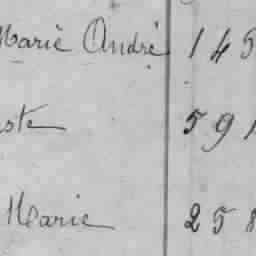 Marie André 145
ste 591
Marie 258